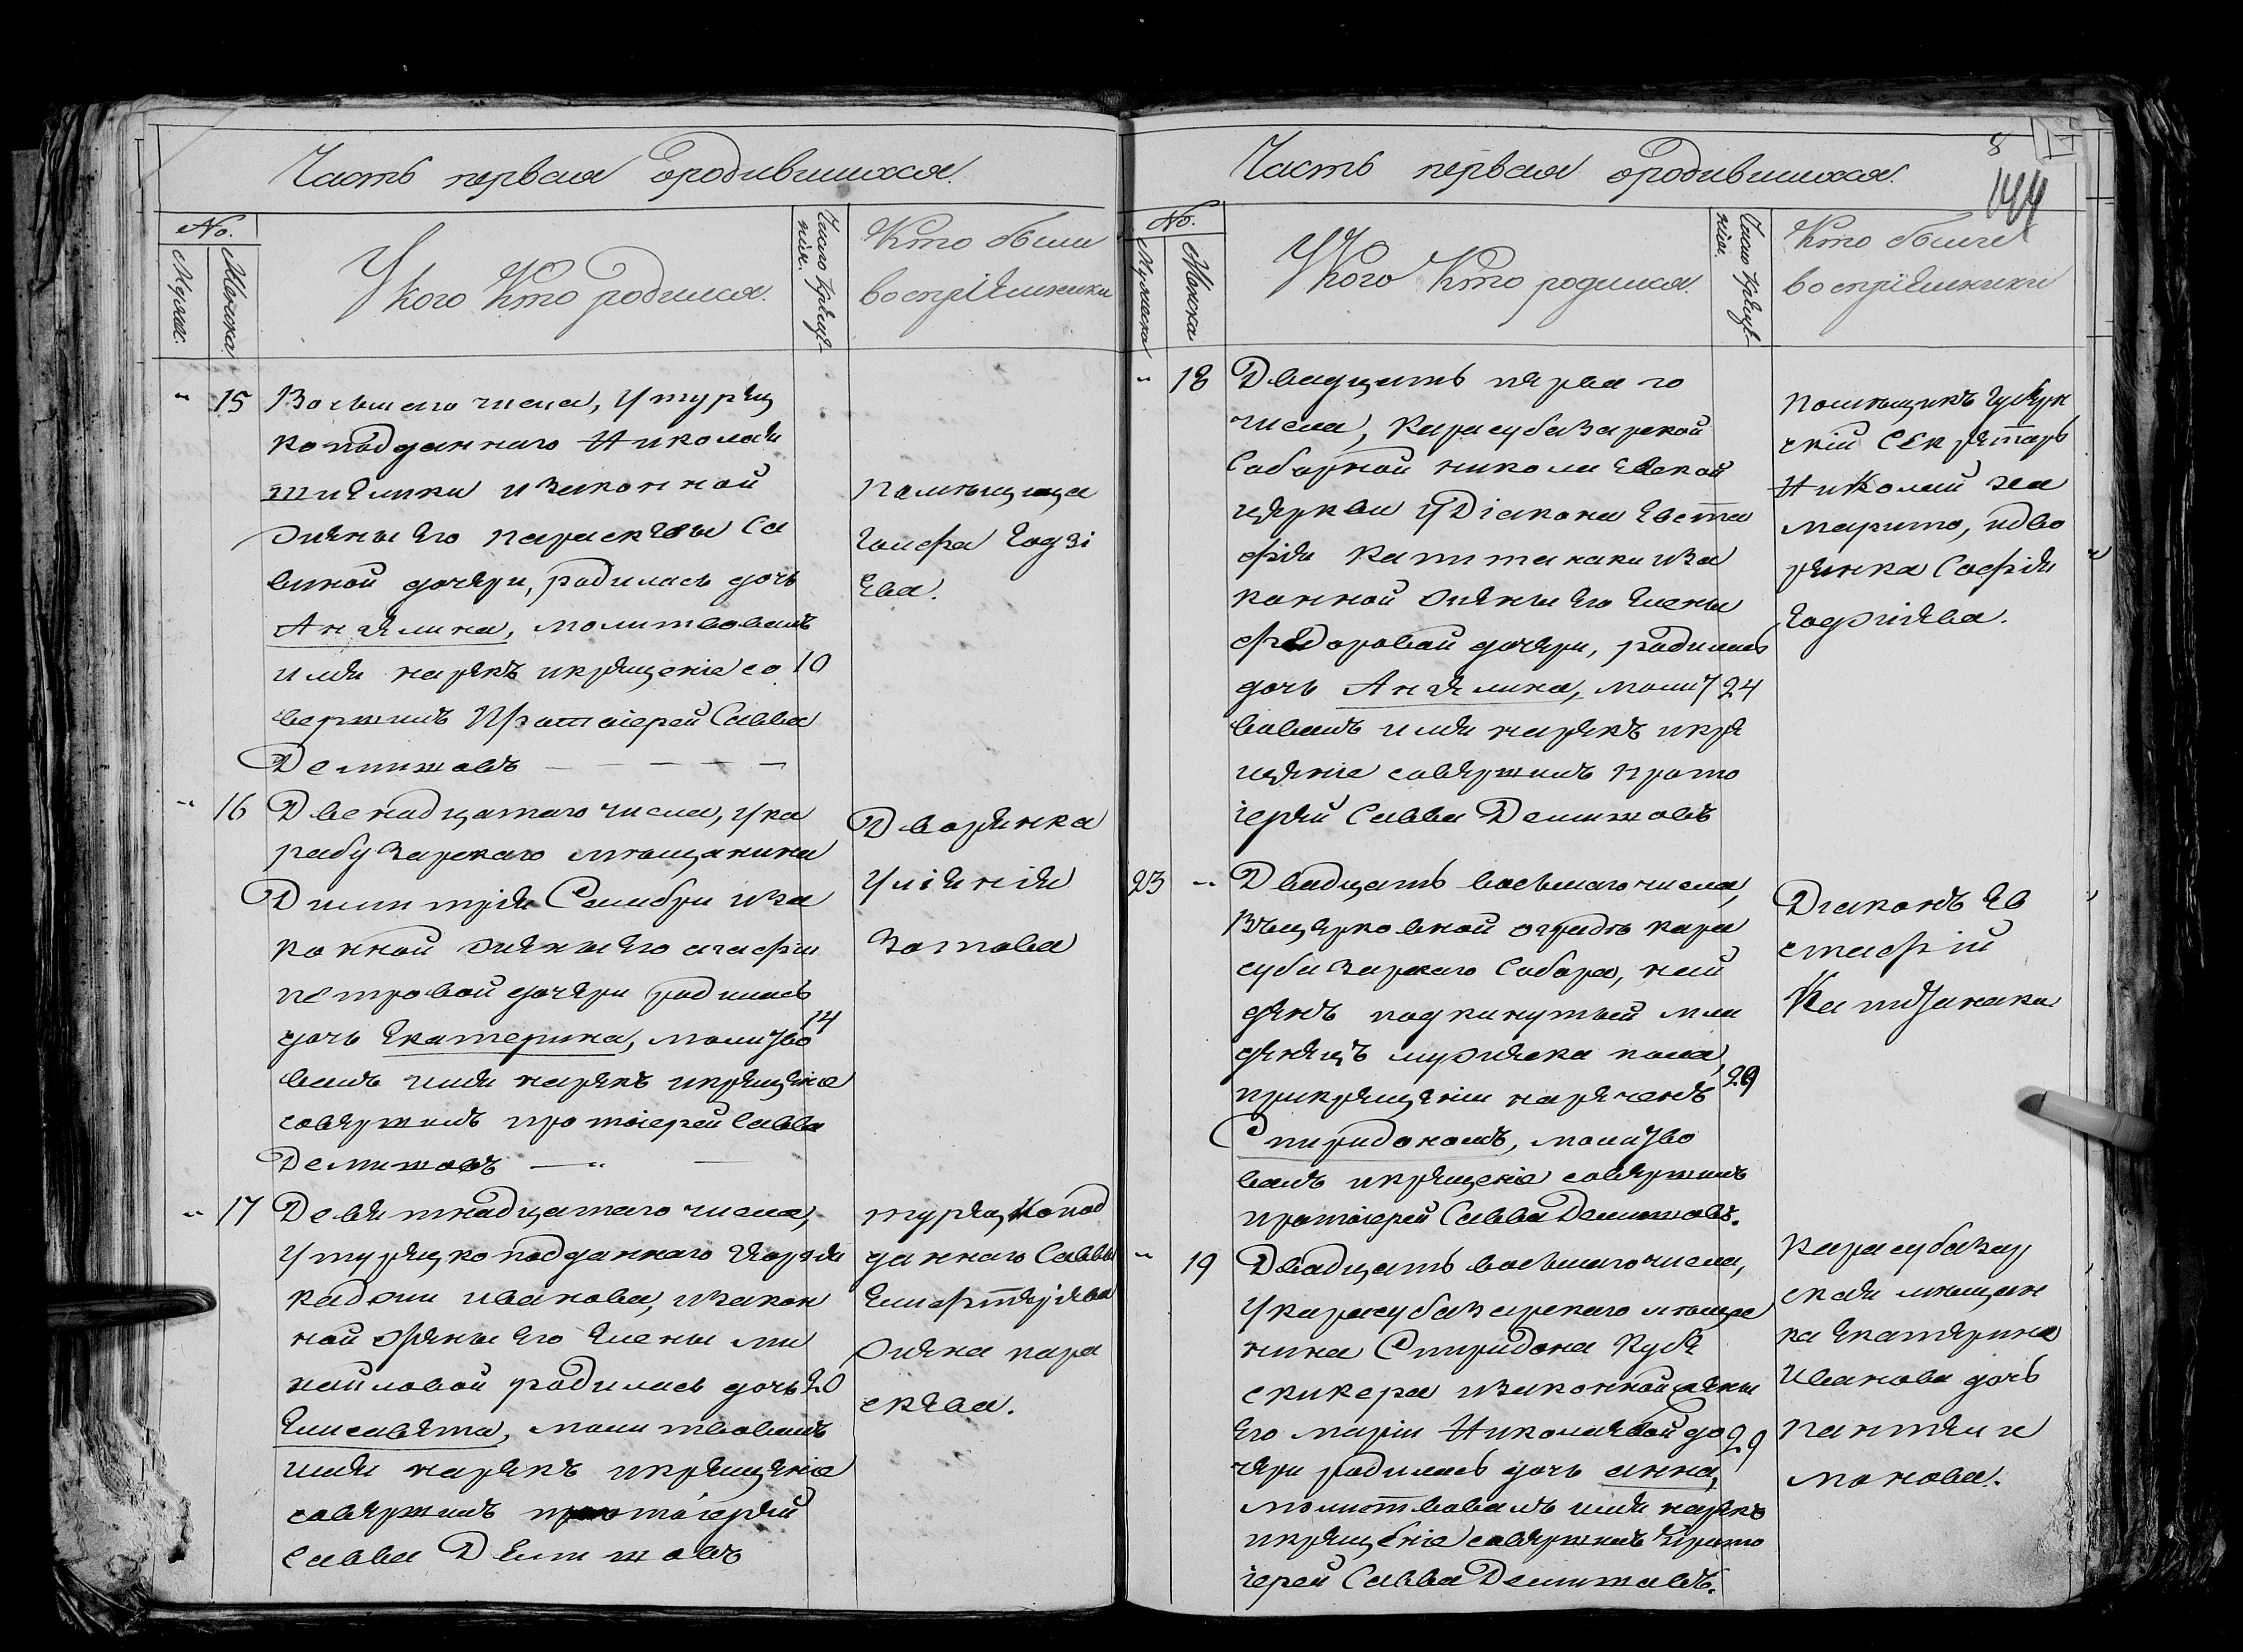 Часть первая ородившихся.
No.
Мужеск.
Женска.
У кого Кто родился.
Число Креще-
нія.
Кто были
воспріемники
15
Восьмаго числа, у турец
коподданнаго Николая
и законной
жены его Параскевы Са
виной дочери, родилась дочь
Ангелина, молитвовалъ
имя нарекъ и крещеніе со
10
вершилъ Протоіерей Савва
Делижовъ
Помѣщица
16
Двенадцатаго числа, у ка
расубазарскаго мѣщанина
Димитрія Самбри и за
конной жены его Агафіи
Петровой дочери родилась
14
дочь Екатерина, молитво
валъ имя нарекъ и крещеніе
совершилъ протоіерей Савва
Делижовъ
Дворянка
Уліянія
Зотова
17
Девятнадцатаго числа,
у турецкоподданнаго Георгія
Каджи Иванова, и закон
ной жены его Елены Ми
хайловой родилась дочь
20
Елисавета, молитвовалъ
имя нарекъ и крещеніе
совершилъ протоіерей
Савва Делижовъ
турецкопод
даннаго Саввы
Елифтерьева
жена Пара
скева.
8
144
Часть первая ородившихся.
No.
Мужеска
Женска
У кого Кто родился.
Число Креще-
нія.
Кто были
воспріемники
18
Двадцать перваго
числа, Карасубазарской
Соборной Николаевской
церкви у Діакона Евста
фія Капитанаки и за
конной жены его Елены
Федоровой дочери, родилась
дочь Ангелина, молит
24
вовалъ имя нарекъ и кре
щеніе совершилъ прото
іерей Савва Делижовъ
помѣщикъ Губерн
скій Секретарь
Николай
и дво
рянка Софія
23
Двадцать восьмаго числа,
въ церковной оградѣ Кара
субазарскаго Собора, най
денъ подкинутый мла
денецъ мужеска пола,
29
при крещеніи нареченъ
Спиридономъ, молитво
валъ и крещеніе совершилъ
протоіерей Савва Делижовъ.
Діаконъ Ев
стафій
Капитанаки
19
Двадцать восьмаго числа,
у карасубазарскаго мѣща
нина Спиридона
и законной жены
его Маріи Николаевой до
29
чери родилась дочь Анна,
молитвовалъ имя нарекъ
и крещеніе совершилъ прото
іерей Савва Делижовъ.
Карасубазар
ская мѣщан
ка Екатерина
Иванова дочь
Пантели
монова.